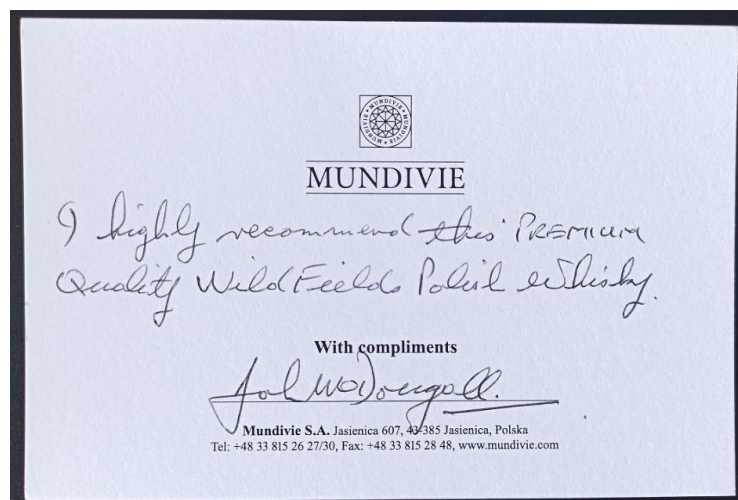 MUNDIVIE • MUNDIVIE • MUNDIVIE •
MUNDIVIE
I highly recommend this PREMIUM
Quality Wild Fields Polish Whisky.
With compliments
John McDougall.
Mundivie S.A. Jasienica 607, 43-385 Jasienica, Polska
Tel: +48 33 815 26 27/30, Fax: +48 33 815 28 48, www.mundivie.com